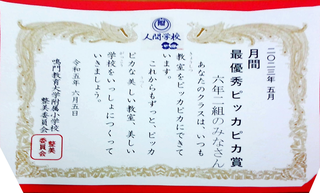 人間学校
二〇二三年 五月
月間
最優秀ピッカピカ賞
六年二組のみなさん
あなたのクラスは、いつも
教室をピッカピカにできて
います。
これからもずっと、ピッカ
ピカな美しい教室、美しい
学校をいっしょにつくって
いきましょう。
令和五年 六月五日
鳴門教育大学附属小学校
整美委員会
整美
委員会